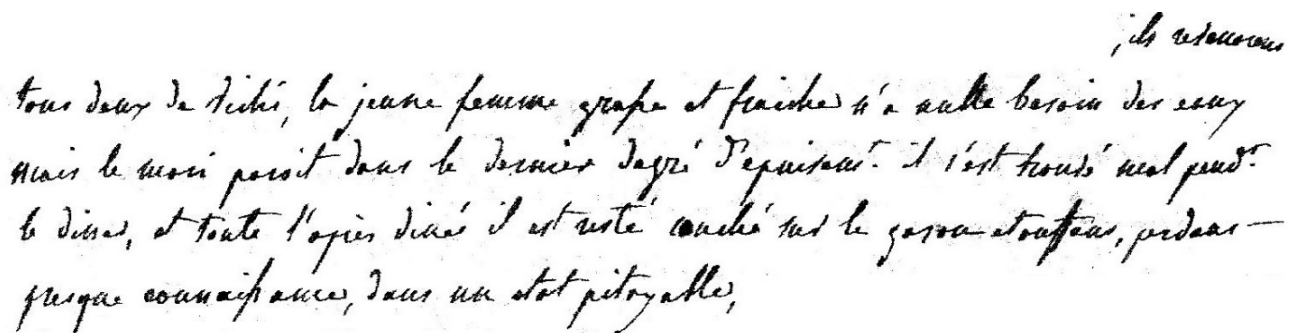 ; ils revenoient
tous deux de vichi, la jeune femme grasse et fraiche n'a nulle besoin des eaux
mais le mari paroit dans le dernier degré d'epuisemt. il s'est trouvé mal pendt.
le diner, et toute l'après diné il est resté couché sur le gason etouffant, perdant
presque connaissance, dans un etat pitoyable,